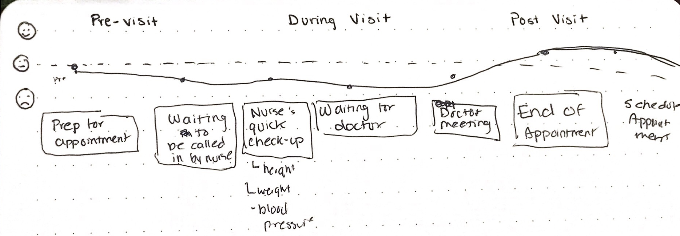 Pre-visit
During Visit
Post Visit
Prep for
appointment
Waiting
to
be called
in by nurse
Nurse's
quick
check-up
height
weight
-blood
pressure
Waiting for
doctor
Doctor
meeting
End of
Appointment
Schedule
Appoint
ment